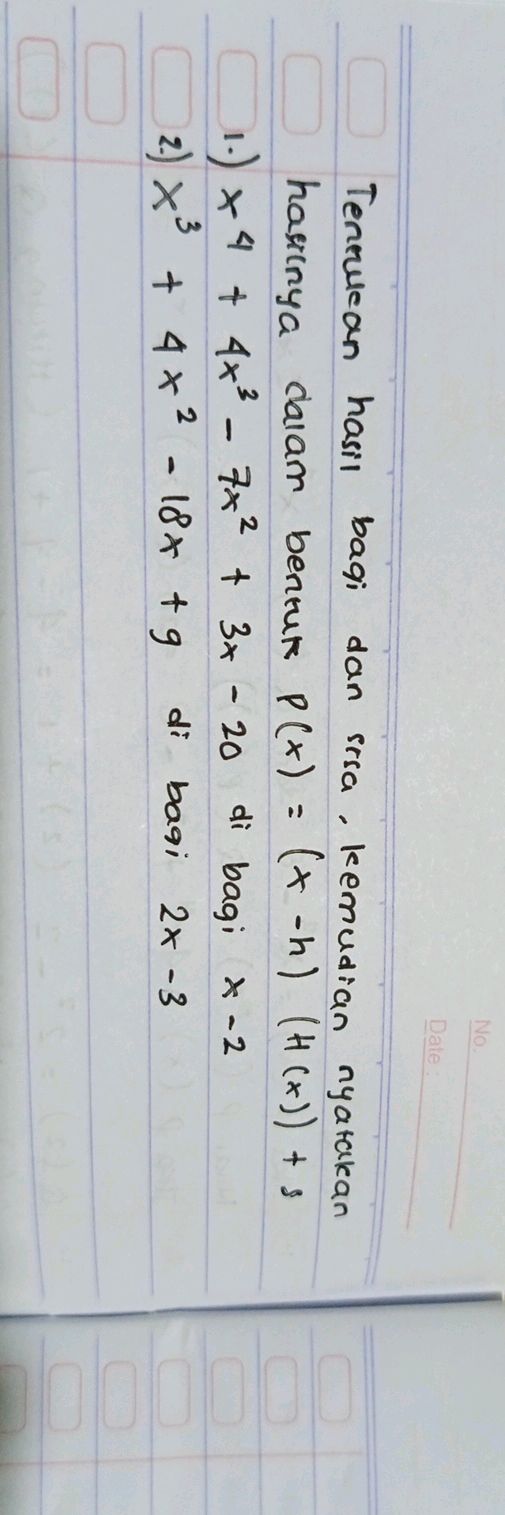 No.
Date:
Tentukan hasil bagi dan sisa, kemudian nyatakan
hasilnya dalam bentuk P(x) = (x-h) (H(x)) + s
1.) x⁴ + 4x³ - 7x² + 3x - 20 di bagi x-2
2.) x³ + 4x² - 18x + 9 di bagi 2x-3